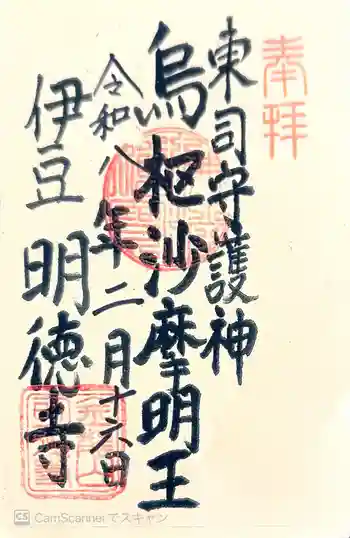 奉拝
東司守護神
烏枢沙摩明王
令和八年十二月十六日
伊豆 明徳寺
CS CamScannerでスキャン